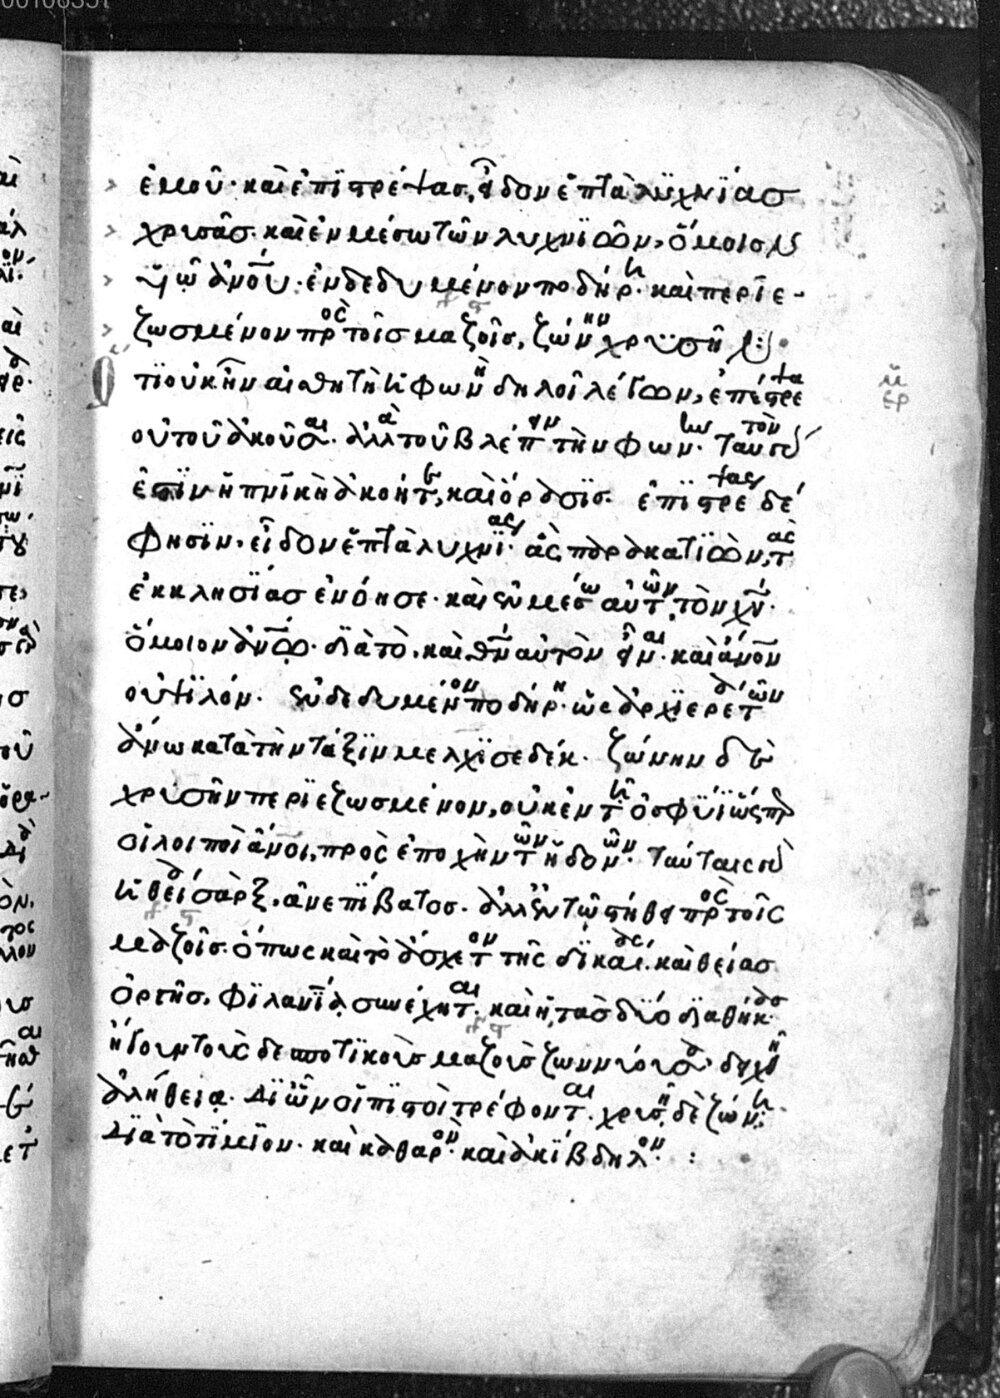 ἐμοῦ· καὶ ἐπιστρέψας, εἶδον ἑπτὰ λυχνίας
χρυσᾶς· καὶ ἐν μέσω τῶν λυχνιῶν, ὅμοιον
υἱῶ ἀν̅ο̅υ· ἐνδεδυμένον ποδήρη· καὶ περιε-
ζωσμένον πρὸς τοῖς μαζοῖς, ζώνην χρυσῆν :
ὅτι οὐκ ἦν αἰσθητὴ ἡ φωνὴ δηλοῖ λέγων, ἐπέστρεψα
οὐ τοῦ ἀκοῦσαι· ἀλλὰ τοῦ βλέπειν τὴν φων· ταυτὸν
ἐστιν ἡ πν̅ικὴ ἀκοὴ τ, καὶ ὅρασις· ἐπιστρέψας δέ
φησιν· εἶδον ἑπτὰ λυχνίας· ἃς παρακατιὼν, τὰς
ἐκκλησίας ἐνόησε· καὶ ἐν μέσω αὐτῶν, τὸν χν̅·
ὅμοιον ἀν̅ω· διὰ τὸ, καὶ θν̅ αὐτὸν εἶναι· καὶ ἄνον̅
οὐ ψιλόν· ἐνδεδυμένον ποδήρη· ὡς ἀρχιερέα τῶν
ἄνω κατὰ τὴν τάξιν μελχισεδέκ· ζώνην δὲ
χρυσῆν περιεζωσμένον, οὐκ ἐν τῆ ὀσφύϊ ὥσπερ
οἱ λοιποὶ ἄνοι̅, πρὸς ἐποχὴν τῶν ἡδονῶν· ταύταις
ἡ θεία σὰρξ, ἀνεπίβατος· ἀλλ' ἐν τῶ στήθει πρὸς τοῖς
μαζοῖς· ὅπως καὶ τὸ ἄσχετον τῆς δικαίας· καὶ θείας
ὀργῆς, φιλανι̅α συνέχηται· καὶ ἢ, τὰς δύο διαθήκας
ἤγουν τοὺς δεσποτικοὺς μαζοὺς ζωννύουσα· δειχθῆ
ἀλήθεια· δι' ὧν οἱ πιστοὶ τρέφονται· χρυσῆ δὲ ζώνη·
διὰ τὸ τίμιον· καὶ καθαρὸν· καὶ ἀκίβδηλον· :